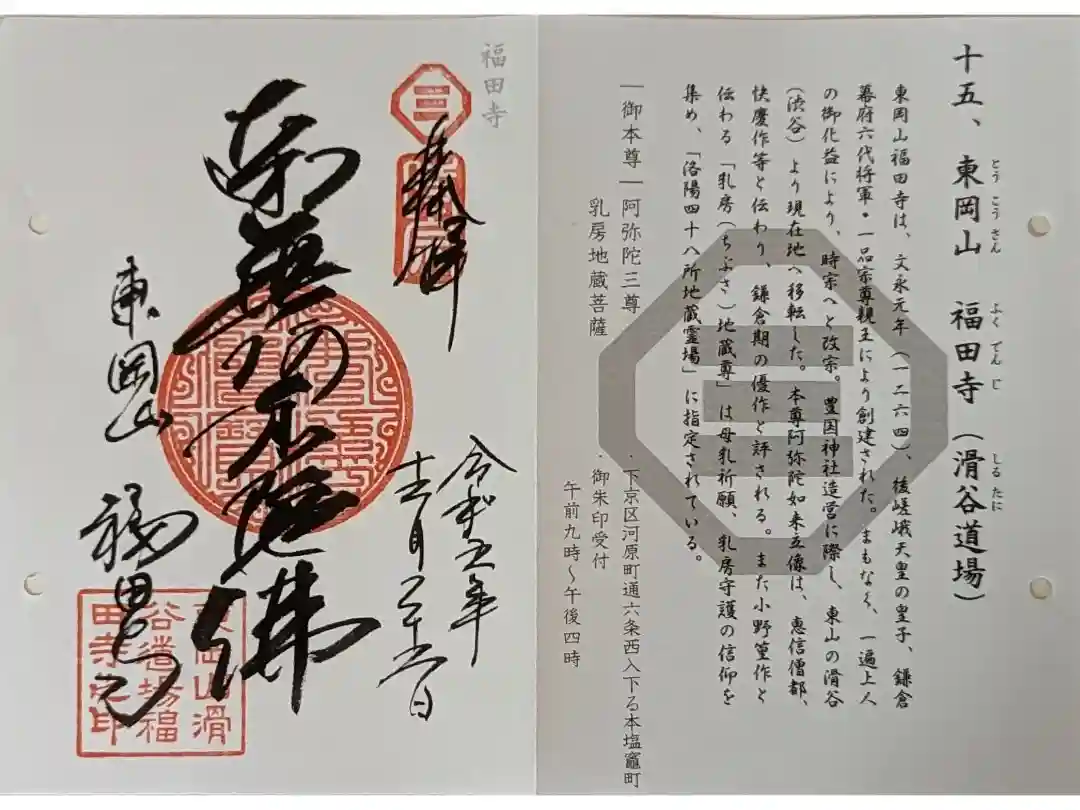 十五、東岡山 福田寺（滑谷道場）
とうこうさん ふくでんじ しるたに
東岡山福田寺は、文永元年（一二六四）、後嵯峨天皇の皇子、鎌倉
幕府六代将軍・一品宗尊親王により創建された。まもなく、一遍上人
の御化益により、時宗へと改宗。豊国神社造営に際し、東山の滑谷
（渋谷）より現在地へ移転した。本尊阿弥陀如来立像は、恵信僧都、
快慶作等と伝わり、鎌倉期の優作と評される。また小野篁作と
伝わる「乳房（ちぶさ）地蔵尊」は母乳祈願、乳房守護の信仰を
集め、「洛陽四十八所地蔵霊場」に指定されている。
一御本尊一阿弥陀三尊
乳房地蔵菩薩
・下京区河原町通六条西入下る本塩竈町
・御朱印受付
午前九時～午後四時
福田寺
奉拝
令和五年
十二月二十六日
南無阿弥陀佛
東岡山
福田寺
東岡山滑
谷道場福
田寺之印